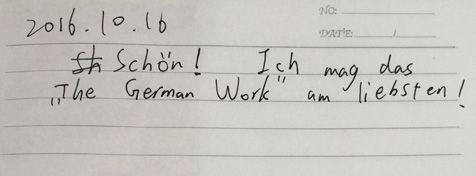 NO:
DATE: /
2016.10.16
Schön! Ich mag das
„The German Work" am liebsten!